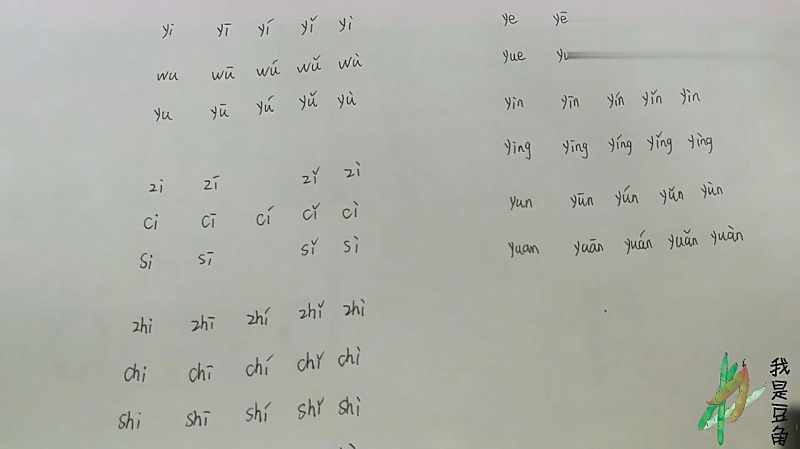 yi yī yí yǐ yì
wu wū wú wǔ wù
yu yū yú yǔ yù
zi zī zǐ zì
ci cī cí cǐ cì
si sī sǐ sì
zhi zhī zhí zhǐ zhì
chi chī chí chǐ chì
shi shī shí shǐ shì
ye yē
yue
yin yīn yín yǐn yìn
ying yīng yíng yǐng yìng
yun yūn yún yǔn yùn
yuan yuān yuán yuǎn yuàn
我是豆角